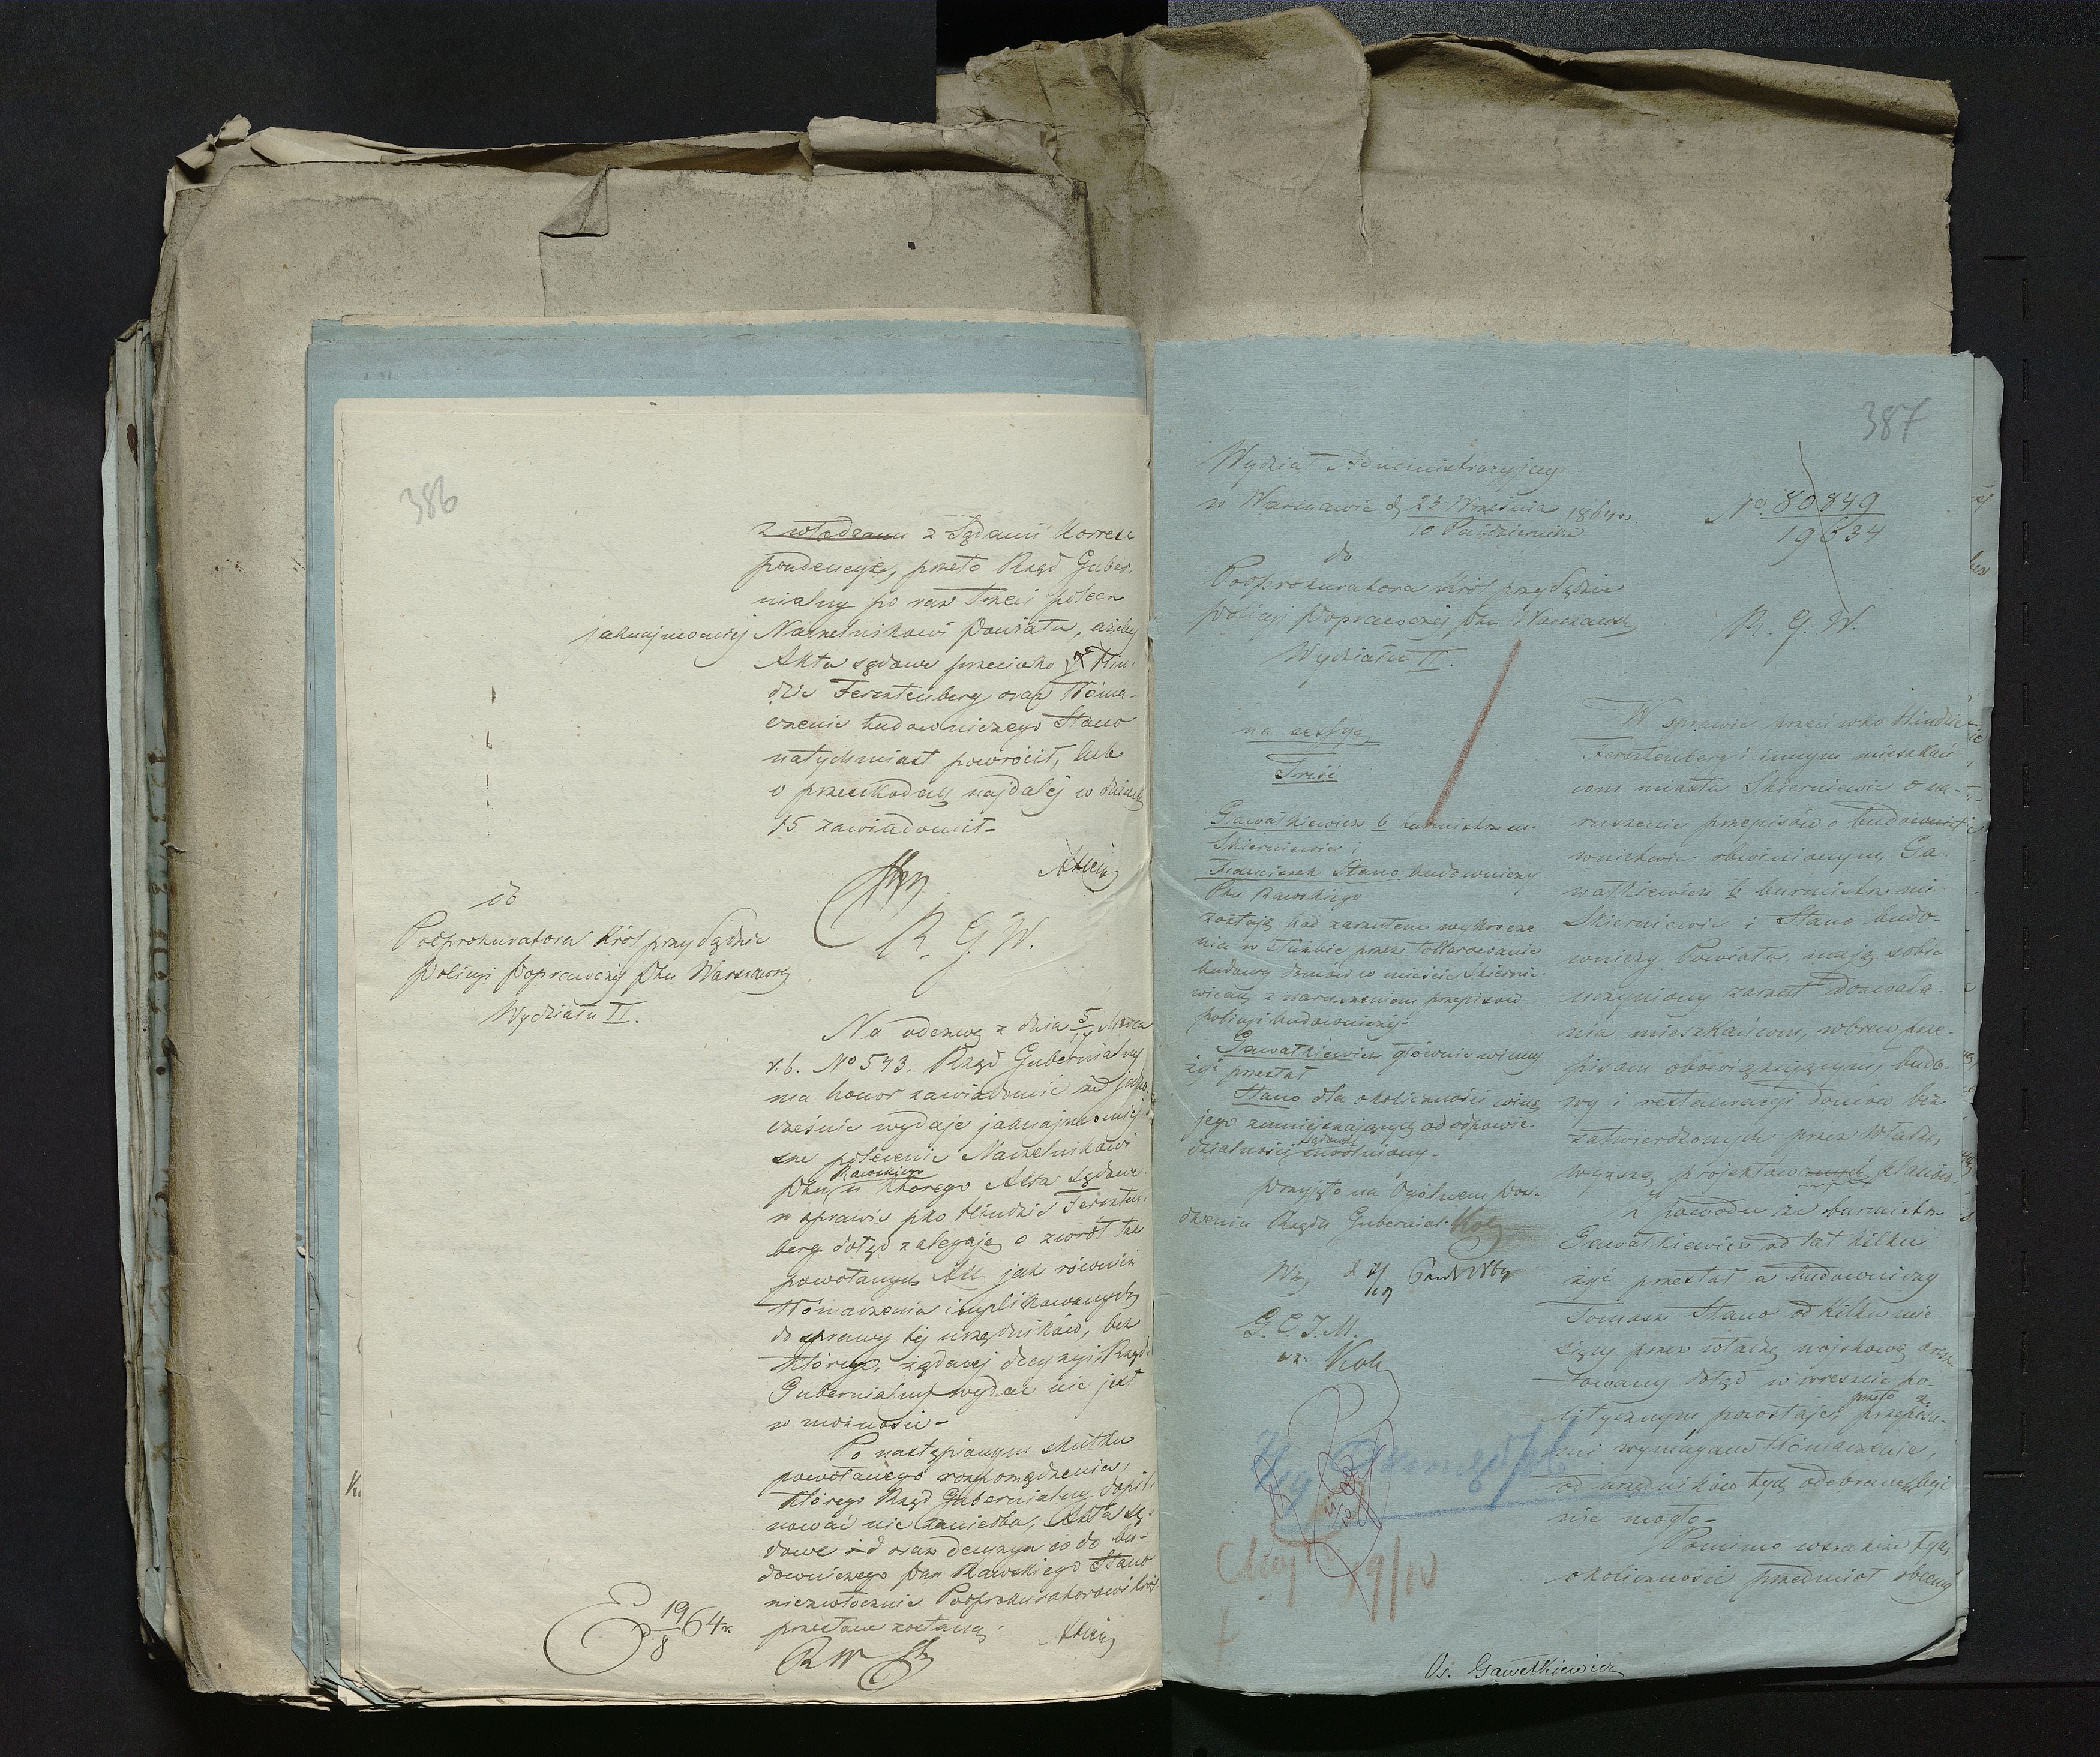 386
z władzami z Sądami korres
pondencyę, przeto Rząd Guber.
nialny po raz trzeci poleca
jaknajmocniej Naczelnikowi Powiatu, ażeby
Akta sądowe przeciwko Hin-
dzie Fersztenberg oraz tłóma-
czenie budowniczego Stano
natychmiast powrócił, lub
o przeszkodach najdalej w dniach
15 zawiadomił-
do
Podprokuratora Król przy Sądzie
Policyi Poprawczej Ptu Warszawsk
Wydziału II.
R. G. W.
Na odezwę z dnia 5/17 Marca
r.b. No 543. Rząd Gubernialny
ma honor zawiadomić że jedno
cześnie wydaje jaknajmocniej
sze polecenie Naczelnikowi
Ptu Rawskiego u którego Akta sądowe
w sprawie pko Hindzie Fersztem
berg dotąd zalegają o zwrót tak
powołanych Akt, jak również
tłómaczenia implikowanych
do sprawy tej urzędników, bez
którego, żądanej decyzyi Rząd
Gubernialny wydać nie jest
w możności-
Po nastąpionym skutku
powołanego rozporządzenia,
którego Rząd Gubernialny dopil-
nować nie zaniedba, Akta są-
dowe i oraz decyzya co do bu-
downiczego Ptu Rawskiego Stano
niezwłocznie Podprokuratorowi Król
przesłane zostaną.
19/8 64 r.
387
Wydział Administracyjny
w Warszawie d 23 Września 1864 r.
10 Października
No 80849
19634
do
Podprokuratora Król przy Sądzie
Policyi Poprawczej Ptu Warszawsk
Wydziału II.
R. G. W.
na sessyę
Treść
Gawałkiewicz b burmistrz m.
Skierniewic i
Franciszek Stano budowniczy
Ptu Rawskiego
zostają pod zarzutem wykrocze-
nia w służbie przez tolerowanie
budowy domów w mieście Skiernie-
wicach z naruszeniem przepisów
policyi budowniczej-
Gawałkiewicz głównie winny
żyć przestał
Stano dla okoliczności winę
jego zmniejszających od odpowie-
dzialności sądowej uwolniony-
Przyjęto na Ogólnem posie-
dzeniu Rządu Gubernial.
G. C. J. M.
W sprawie przeciwko Hindzie
Fersztenberg i innym mieszkań
com miasta Skierniewic o na-
ruszenie przepisów o budowni
wnictwie obwinionym, Ga
wałkiewicz b burmistrz mi.
Skierniewic i Stano budo-
wniczy Powiatu, mają sobie
uczyniony zarzut dozwala-
nia mieszkańcom, wbrew prze-
pisom obowiązującym, budo-
wy i restauracyi domów bez
zatwierdzonych przez Władzę
wyższą projektów planów.
Z powodu że burmistrz
Gawałkiewicz od lat kilku
żyć przestał a budowniczy
Tomasz Stano od kilku mie-
sięcy przez władzę wojskową aresz-
towany dotąd w areszcie po-
litycznym pozostaje, przeto przepisa-
mi wymagane tłómaczenie,
od urzędników tych odebranem być
nie mogło-
Pomimo wszakże tych
okoliczności przedmiot obecny
19/IV
Os. Gawełkiewicz